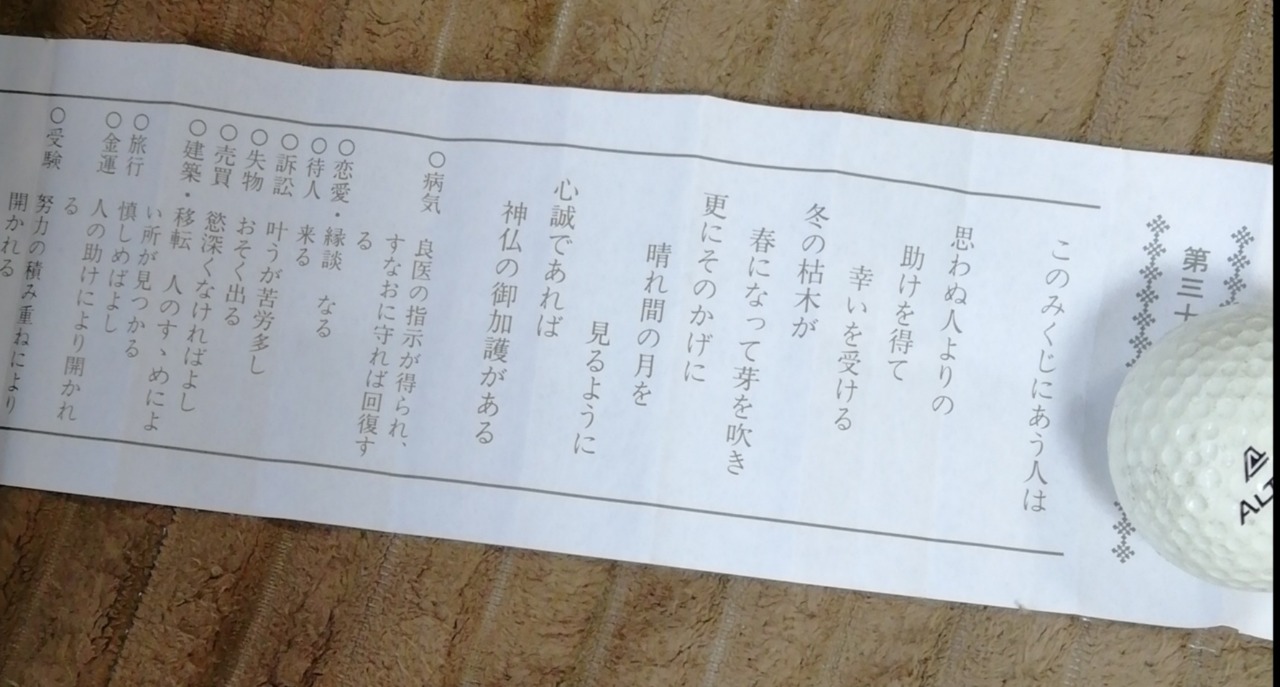 第三十
このみくじにあう人は
思わぬ人よりの
助けを得て
幸いを受ける
冬の枯木が
春になって芽を吹き
更にそのかげに
晴れ間の月を
見るように
心誠であれば
神仏の御加護がある
○病気 良医の指示が得られ、
すなおに守れば回復す
る
○恋愛・縁談 なる
○待人 来る
○訴訟 叶うが苦労多し
○失物 おそく出る
○売買 慾深くなければよし
○建築・移転 人のすゝめによ
い所が見つかる
○旅行 慎しめばよし
○金運 人の助けにより開かれ
る
○受験 努力の積み重ねにより
開かれる
ALT